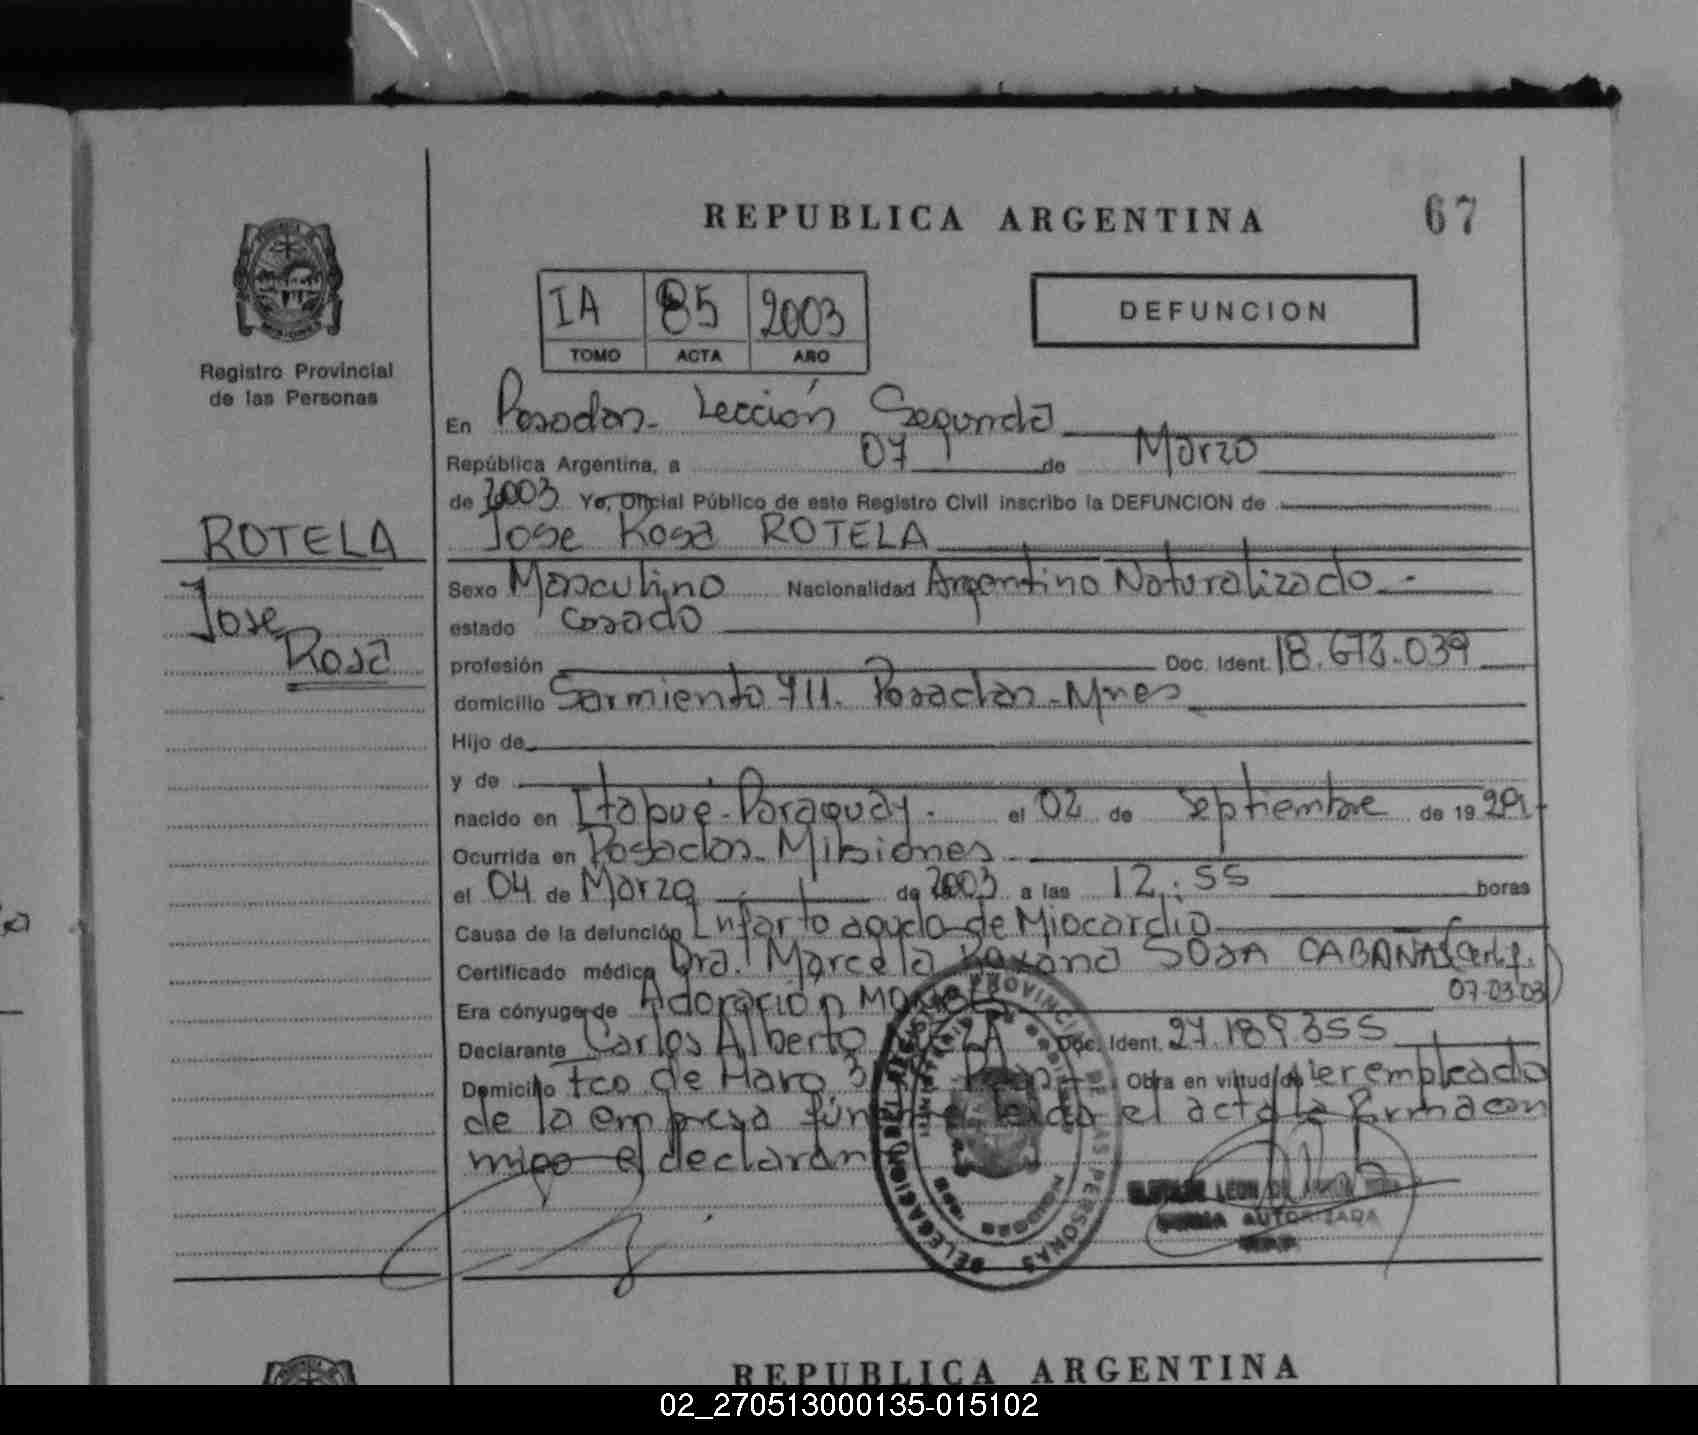 REPUBLICA ARGENTINA
67
IA 85 2003
TOMO ACTA AÑO
DEFUNCION
Registro Provincial
de las Personas
ROTELA
Jose
Rosa
En Posadas- Sección Segunda
República Argentina, a 07 de Marzo
de 2003 Yo, Oficial Público de este Registro Civil inscribo la DEFUNCION de
Jose Rosa ROTELA
Sexo Masculino Nacionalidad Argentino Naturalizado.-
estado Casado
profesión Doc. Ident. 18.673.039
domicilio Sarmiento 711. Posadas-Mnes
Hijo de
y de
nacido en Itapué-Paraguay. el 02 de Septiembre de 1929
Ocurrida en Posadas-Misiones
el 04 de Marzo de 2003 a las 12:55 horas
Causa de la defunción Infarto agudo de Miocardio
Certificado médico Dra. Marcela Roxana SOSA CABAÑAS (Certif.
07-03-03)
Era cónyuge de Adoración
Declarante Carlos Alberto Doc. Ident. 27.189.355
Domicilio Fco de Haro Obra en virtud de ser empleado
de la empresa leída el acta la firma con
migo el declarante
DELEGACION
REGISTRO PROVINCIAL DE LAS PERSONAS
LEON
FIRMA AUTORIZADA
REPUBLICA ARGENTINA
02_270513000135-015102